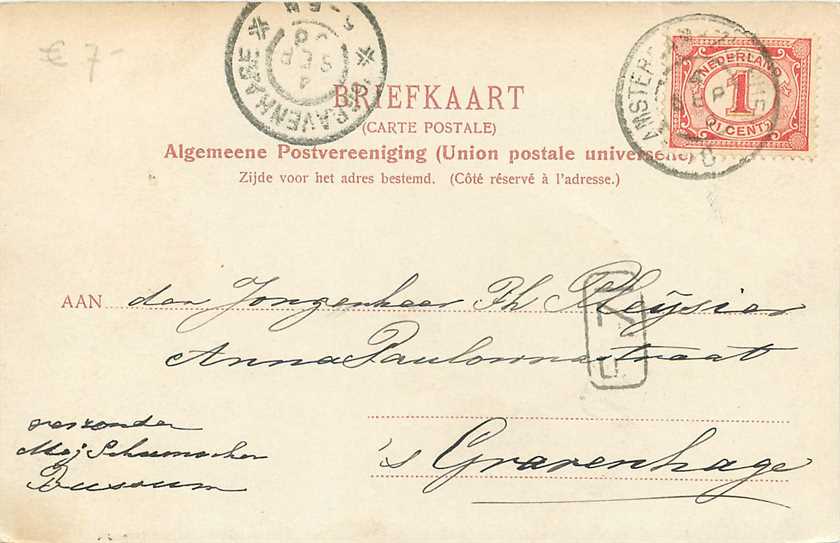 € 7-
'S-GRAVENHAGE
4 SEP
5-6N
AMSTERDAM
NEDERLAND
1
CENT
BRIEFKAART
(CARTE POSTALE)
Algemeene Postvereeniging (Union postale universelle)
Zijde voor het adres bestemd. (Côté réservé à l'adresse.)
AAN den Jongenheer Th Pleijsier
Anna Paulownastraat
's Gravenhage
afzender
Mej Schumacher
Bussum